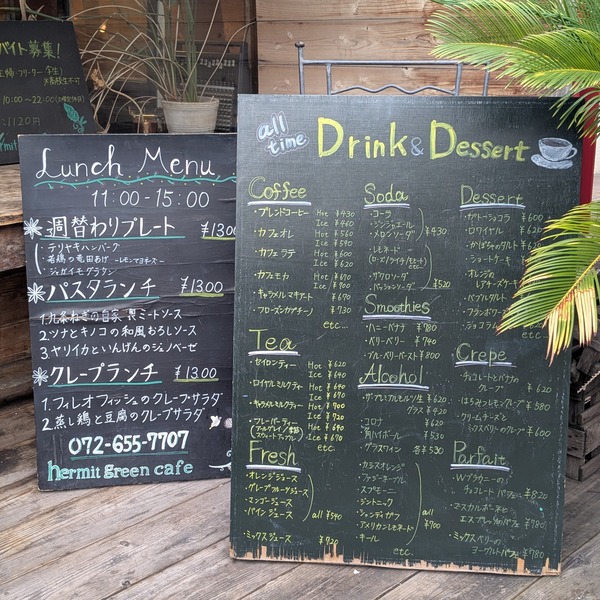 バイト募集!
10:00~22:00
Lunch Menu
11:00-15:00
週替わりプレート ¥1300
・テリヤキハンバーグ
・若鶏の竜田あげ -レモンマヨネーズ-
・ジャガイモグラタン
パスタランチ ¥1300
1.九条ねぎの自家製ミートソース
2.ツナとキノコの和風おろしソース
3.ヤリイカといんげんのジェノベーゼ
クレープランチ ¥1300
1.フィレオフィッシュのクレープ・サラダ
2.蒸し鶏と豆腐のクレープサラダ
072-655-7707
hermit green cafe
all time Drink & Dessert
Coffee
・ブレンドコーヒー Hot ¥430
Ice ¥460
・カフェオレ Hot ¥560
Ice ¥590
・カフェラテ Hot ¥600
Ice ¥630
・カフェモカ Hot ¥670
Ice ¥690
・キャラメルマキアート Hot ¥670
・フローズンカプチーノ ¥730
etc...
Tea
・セイロンティー Hot ¥620
Ice ¥640
・ロイヤルミルクティー Hot ¥640
Ice ¥670
・キャラメルミルクティー Hot ¥700
Ice ¥720
・フレーバーティー Hot ¥640
Ice ¥670
etc.
Fresh
・オレンジジュース
・グレープフルーツジュース
・マンゴージュース
・パインジュース
all ¥590
・ミックスジュース ¥720
Soda
・コーラ
・ジンジャエール
・メロンソーダ
¥430
・レモネード
・ザクロソーダ
・パッションソーダ
¥520
Smoothies
・ハニーバナナ ¥780
・ベリーベリー ¥740
・ブルーベリーヨーグルト ¥800
Alcohol
・ザ・プレミアムモルツ生 ¥620
グラス ¥420
・コロナ ¥620
・角ハイボール ¥530
・グラスワイン 各¥530
・カシスオレンジ
・ファジーネーブル
・スプモーニ
・ジントニック
・シャンディガフ
・アメリカンレモネード
・キール
all ¥700
etc.
Dessert
・ガトーショコラ ¥600
・ロワイヤル ¥620
・かぼちゃのタルト ¥620
・ショートケーキ
・オレンジの
レアチーズケーキ
・アップルタルト
・フランボワーズ
・ドゥショコラ
Crepe
・チョコレートとバナナの
クレープ ¥620
・はちみつレモンクレープ ¥580
・クリームチーズと
ミックスベリーのクレープ ¥600
Parfait
・Wブラウニーの
チョコレートパフェ ¥820
・マスカルポーネと
エスプレッソのパフェ ¥780
・ミックスベリーの
ヨーグルトパフェ ¥780